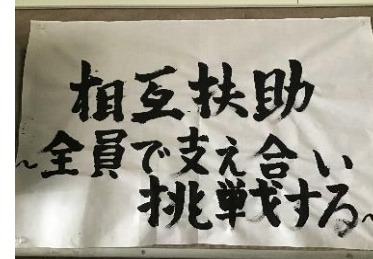 相互扶助
~全員で支え合い
挑戦する~